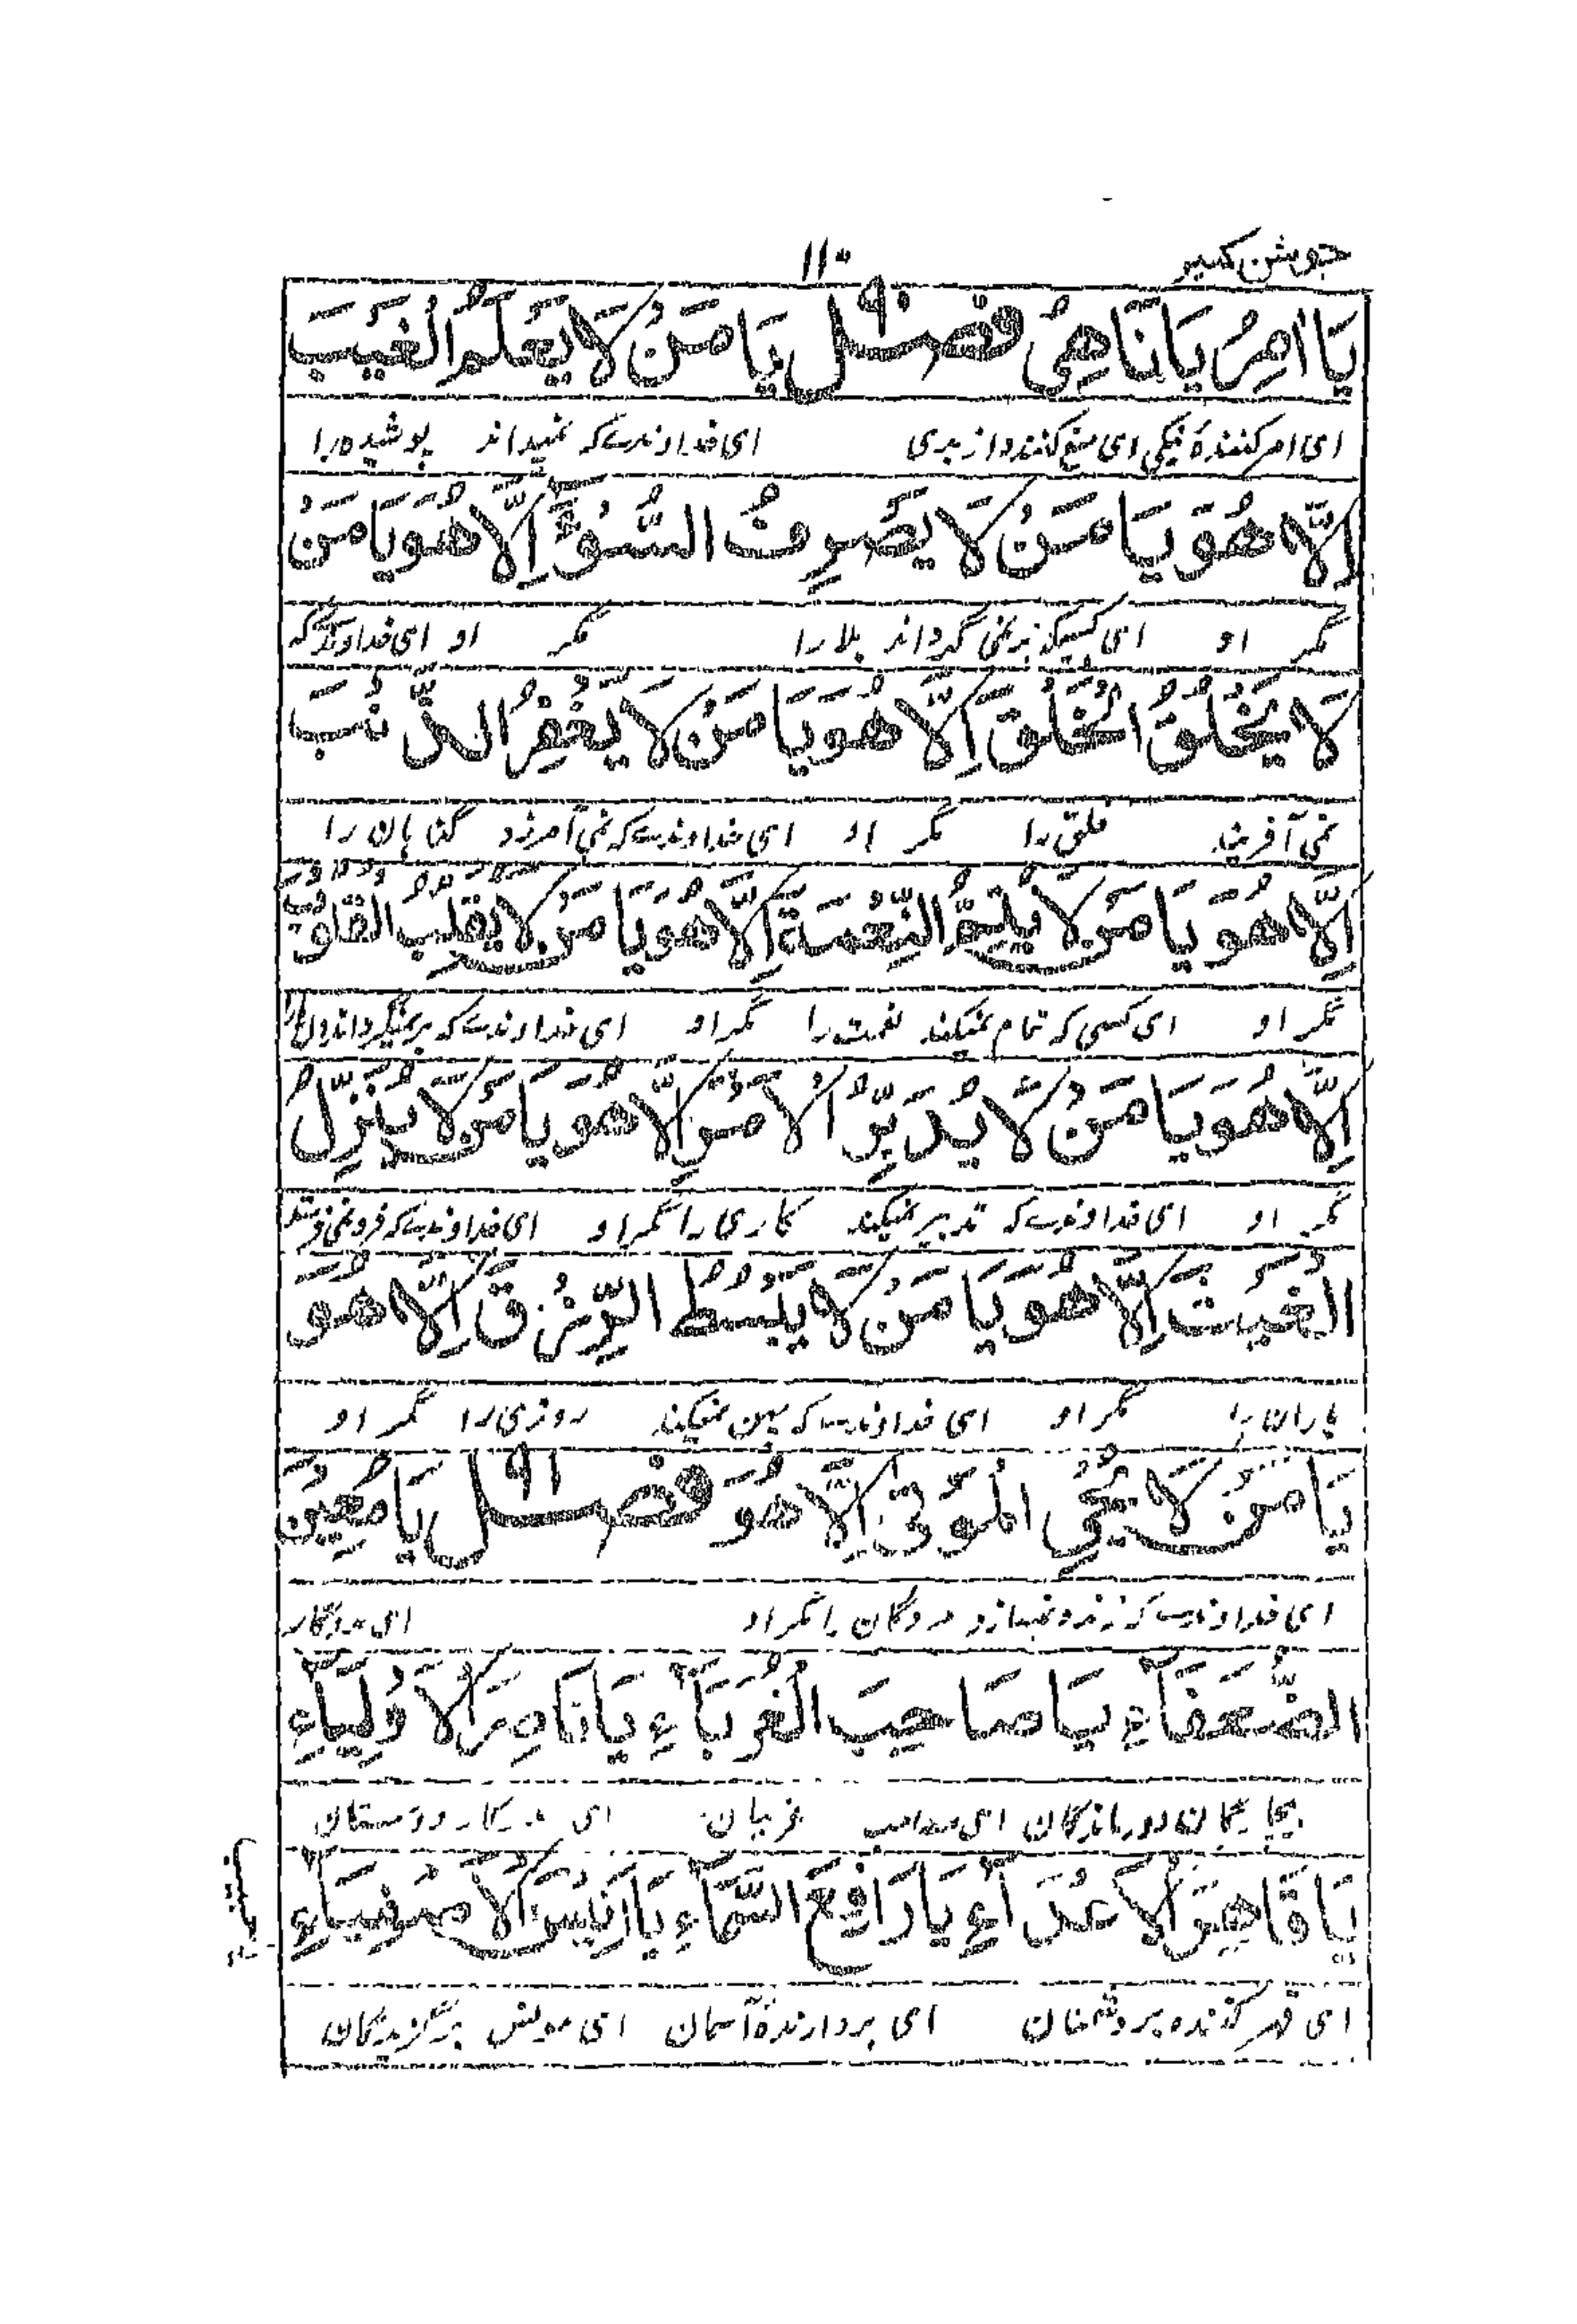 جوشن کبیر
۱۱۰
يَا اٰمِرُ يَا نَاهِي فصل ۹۰ يَا مَنْ لَا يَعْلَمُ الْغَيْبَ
ای امر کننده نیکی ای منع کننده از بدی ای خداوندی که نمیداند پوشیده را
اِلَّا هُوَ يَا مَنْ لَا يَصْرِفُ السُّوْءَ اِلَّا هُوَ يَا مَنْ
مگر او ای کسیکه برنمی گرداند بلا را مگر او ای خداوندی که
لَا يَخْلُقُ الْخَلْقَ اِلَّا هُوَ يَا مَنْ لَا يَغْفِرُ الذَّنْبَ
نمی آفریند خلق را مگر او ای خداوندی که نمی آمرزد گناهان را
اِلَّا هُوَ يَا مَنْ لَا يُتِمُّ النِّعْمَةَ اِلَّا هُوَ يَا مَنْ لَا يُقَلِّبُ الْقُلُوْبَ
مگر او ای کسی که تمام نمیکند نعمت را مگر او ای خداوندی که برنمیگرداند دل
اِلَّا هُوَ يَا مَنْ لَا يُدَبِّرُ الْاَمْرَ اِلَّا هُوَ يَا مَنْ لَا يُنَزِّلُ
مگر او ای خداوندی که تدبیر نمیکند کاری را مگر او ای خداوندی که فرو نمی فرستد
الْغَيْثَ اِلَّا هُوَ يَا مَنْ لَا يَبْسُطُ الرِّزْقَ اِلَّا هُوَ
باران را مگر او ای خداوندی که پهن نمیکند روزی را مگر او
يَا مَنْ لَا يُحْيِي الْمَوْتٰى اِلَّا هُوَ فصل ۹۱ يَا مُعِيْنَ
ای خداوندی که زنده نمیسازد مردگان را مگر او ای مددگار
الضُّعَفَاءِ يَا صَاحِبَ الْغُرَبَاءِ يَا نَاصِرَ الْاَوْلِيَاءِ
بیچارگان و درماندگان ای صاحب غریبان ای مددکار دوستان
يَا قَاهِرَ الْاَعْدَاءِ يَا رَافِعَ السَّمَاءِ يَا اَنِيْسَ الْاَصْفِيَاءِ
ای قهر کننده بر دشمنان ای بردارنده آسمان ای مونس برگزیدگان